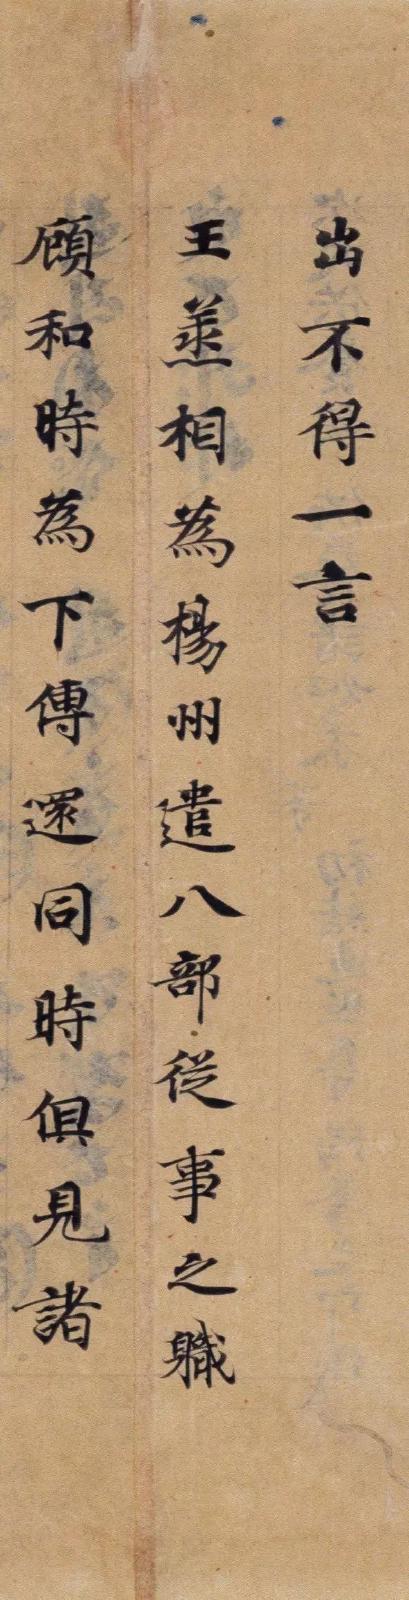 出不得一言
王烝相為楊州遣八部從事之軄
顧和時為下傳還同時俱見諸